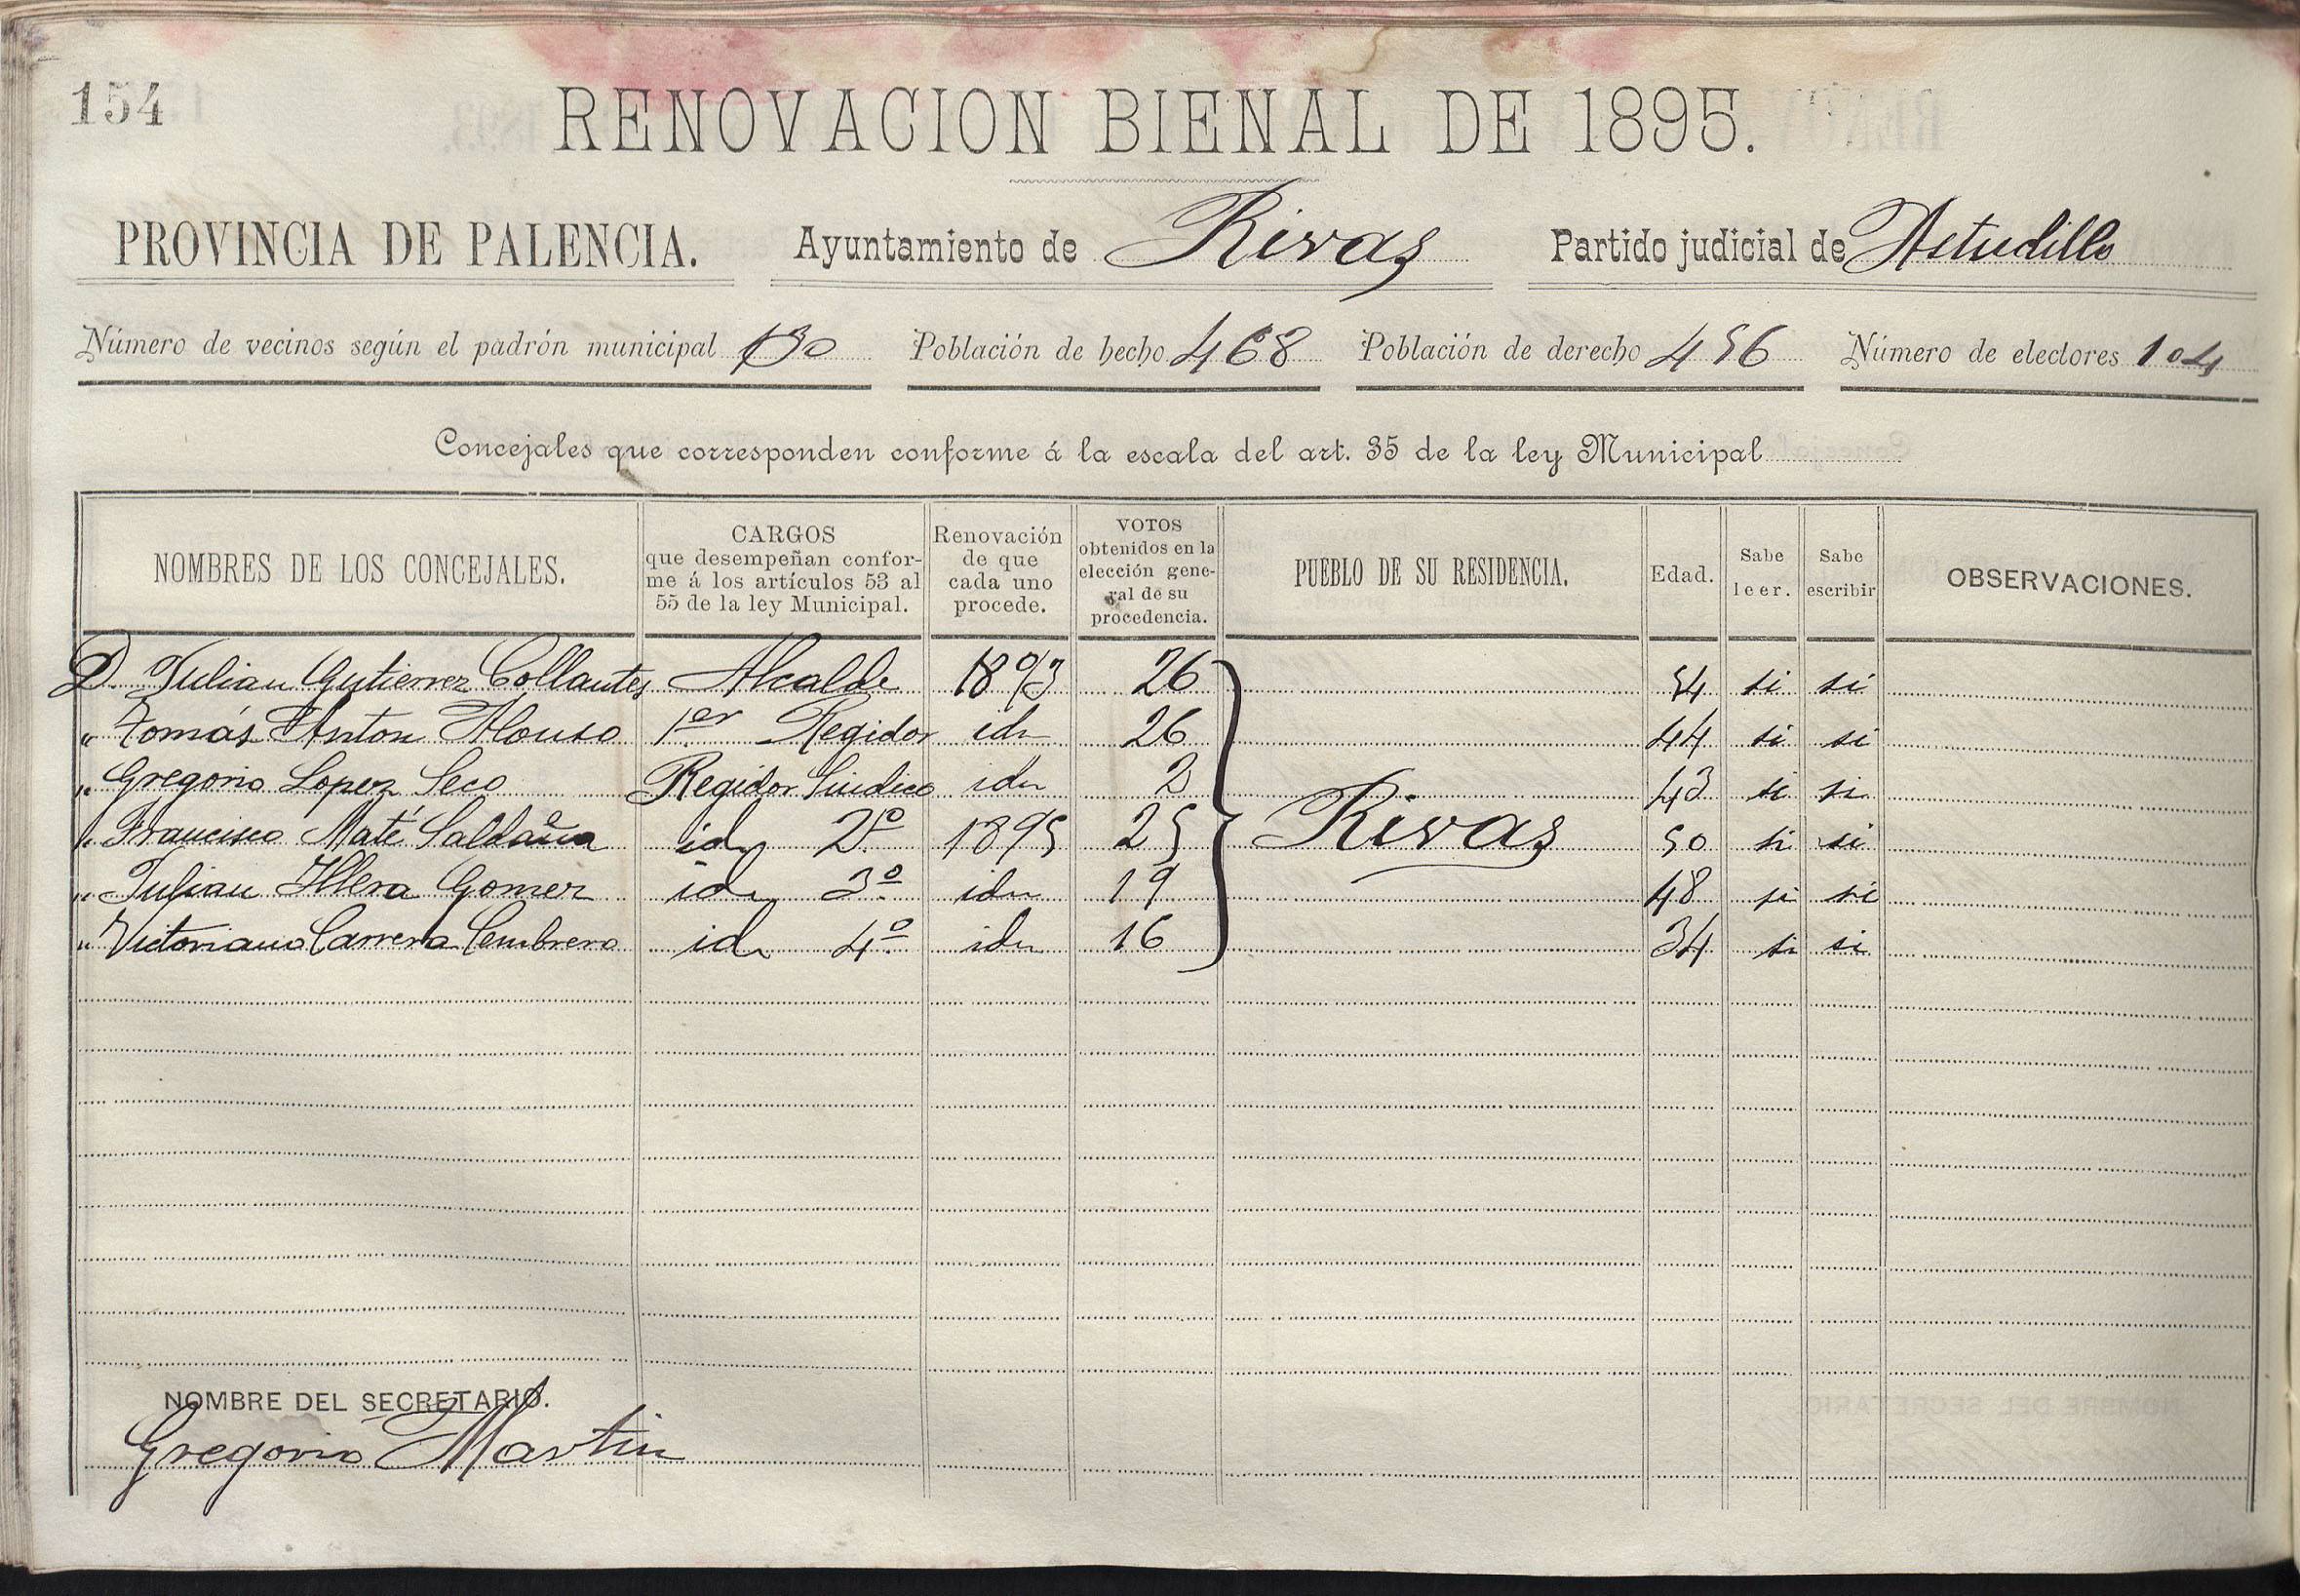 154
RENOVACION BIENAL DE 1895.
PROVINCIA DE PALENCIA. Ayuntamiento de Rivas Partido judicial de Astudillo
Número de vecinos según el padrón municipal 130 Población de hecho 468 Población de derecho 456 Número de electores 104
Concejales que corresponden conforme á la escala del art. 35 de la ley Municipal
NOMBRES DE LOS CONCEJALES.
CARGOS
que desempeñan confor-
me á los artículos 53 al
55 de la ley Municipal.
Renovación
de que
cada uno
procede.
VOTOS
obtenidos en la
elección gene-
ral de su
procedencia.
PUEBLO DE SU RESIDENCIA.
Edad.
Sabe
leer.
Sabe
escribir
OBSERVACIONES.
D. Julian Gutierrez Collantes Alcalde 1893 26 54 si si
" Tomás Anton Alonso 1er Regidor idm 26 44 si si
" Gregorio Lopez Seco Regidor Sindico idm 2 43 si si
" Francisco Maté Saldaña id 2º 1895 25 Rivas 50 si si
" Julian Illera Gomez id 3º idm 19 48 si si
" Victoriano Carrera Cembrero id 4º idm 16 34 si si
NOMBRE DEL SECRETARIO.
Gregorio Martin